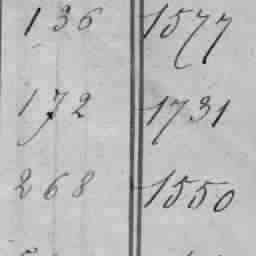 136 1577
172 1731
268 1550